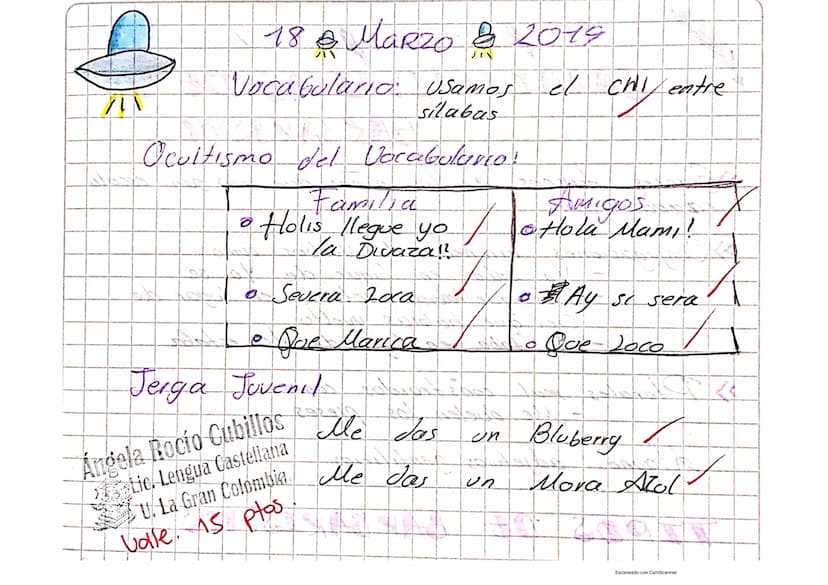 18 Marzo 2019
Vocabulario: usamos el CHI entre
silabas
Ocultismo del Vocabulario!
Familia
Holis llegue yo
la Divaza!!
Severa Loca
Que Marica
Amigos
Hola Mami!
Ay si sera
Que Loco
Jerga Juvenil
Me das un Bluberry
Me das un Mora Azul
Ángela Rocío Cubillos
Lic. Lengua Castellana
U. La Gran Colombia
Vale. 15 ptos.
Escaneado con CamScanner